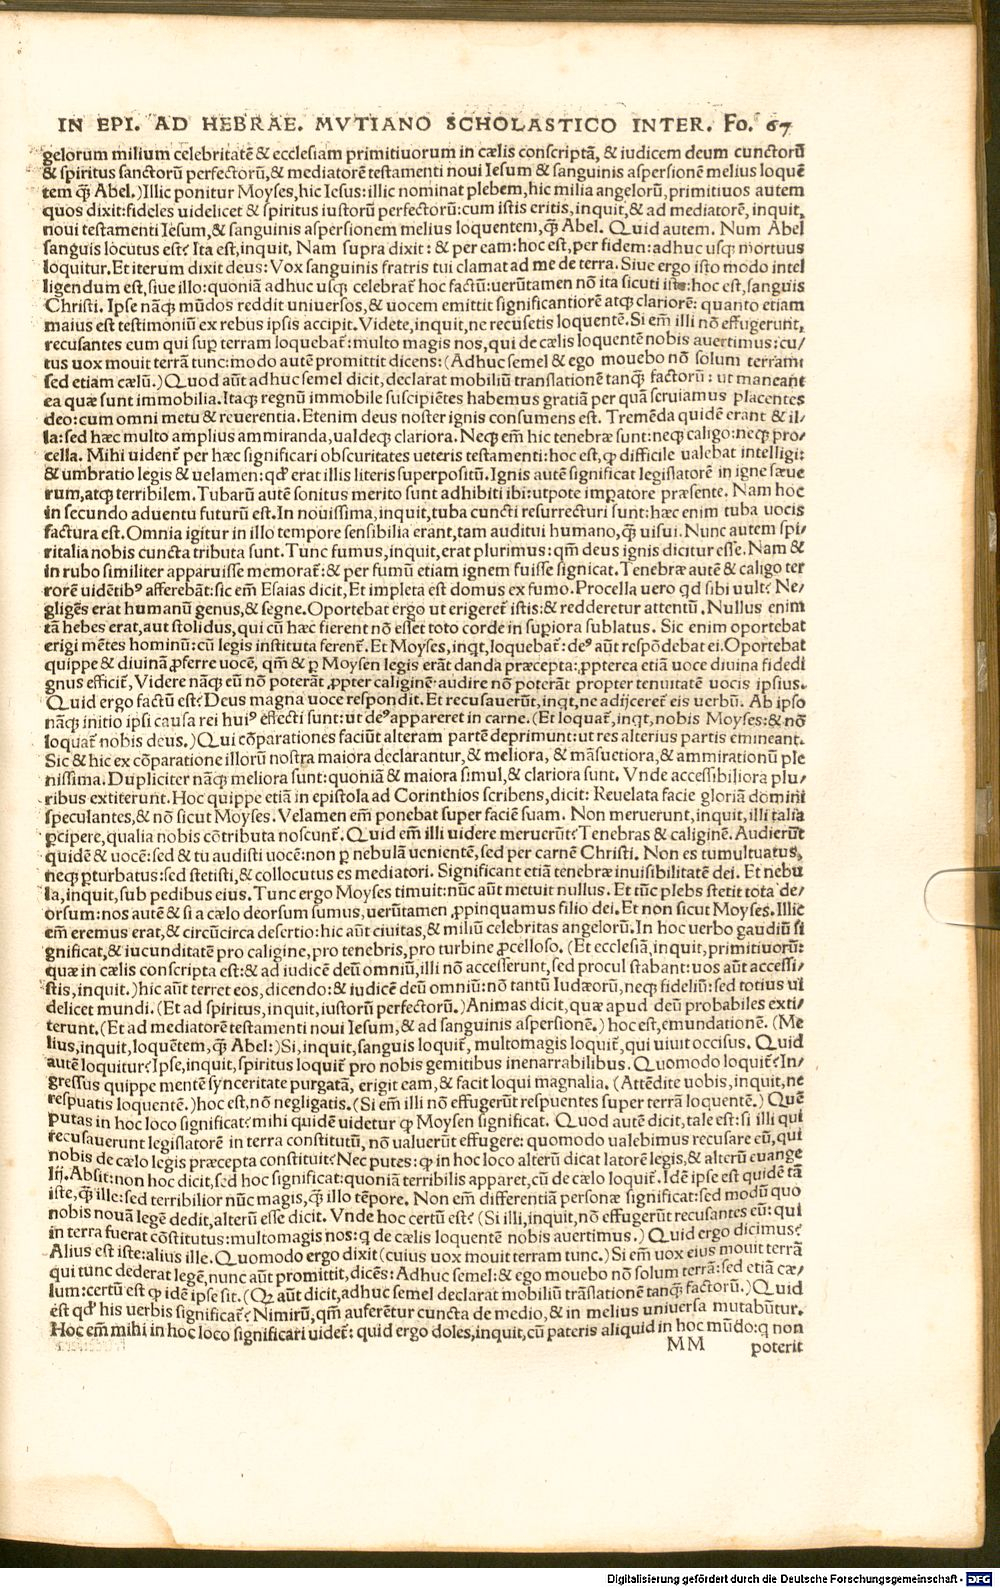 IN EPI. AD HEBRAE. MVTIANO SCHOLASTICO INTER. Fo. 67
gelorum milium celebritatē & ecclesiam primitiuorum in cælis conscriptā, & iudicem deum cunctorū
& spiritus sanctorū perfectorū, & mediatorē testamenti noui Iesum & sanguinis aspersionē melius loquē
tem q̃ Abel.) Illic ponitur Moyses, hic Iesus: illic nominat plebem, hic milia angelorū, primitiuos autem
quos dixit: fideles uidelicet & spiritus iustorū perfectorū: cum istis eritis, inquit, & ad mediatorē, inquit,
noui testamenti Iesum, & sanguinis aspersionem melius loquentem, q̃ Abel. Quid autem. Num Abel
sanguis locutus est? Ita est, inquit, Nam supra dixit: & per eam: hoc est, per fidem: adhuc usq; mortuus
loquitur. Et iterum dixit deus: Vox sanguinis fratris tui clamat ad me de terra. Siue ergo isto modo intel
ligendum est, siue illo: quoniā adhuc usq; celebrat̃ hoc factū: uerūtamen nō ita sicuti iste: hoc est, sanguis
Christi. Ipse nāq; mūdos reddit uniuersos, & uocem emittit significantiorē atq; clariorē: quanto etiam
maius est testimoniū ex rebus ipsis accipit. Videte, inquit, ne recusetis loquentē. Si em̄ illi nō effugerunt,
recusantes eum qui sup terram loquebat̃: multo magis nos, qui de cælis loquentē nobis auertimus: cu/
tus uox mouit terrā tunc: modo autē promittit dicens: (Adhuc semel & ego mouebo nō solum terram
sed etiam cælū.) Quod aūt adhuc semel dicit, declarat mobiliū translationē tanq̃ factorū: ut maneant
ea quæ sunt immobilia. Itaq; regnū immobile suscipiētes habemus gratiā per quā seruiamus placentes
deo: cum omni metu & reuerentia. Etenim deus noster ignis consumens est. Tremēda quidē erant & il/
la: sed hæc multo amplius ammiranda, ualdeq; clariora. Neq; em̄ hic tenebræ sunt: neq; caligo: neq; pro/
cella. Mihi uident̃ per hæc significari obscuritates ueteris testamenti: hoc est, ꝙ difficile ualebat intelligi:
& umbratio legis & uelamen: qd' erat illis literis superpositū. Ignis autē significat legislatorē in igne sæue
rum, atq; terribilem. Tubarū autē sonitus merito sunt adhibiti ibi: utpote impatore præsente. Nam hoc
in secundo aduentu futurū est. In nouissima, inquit, tuba cuncti resurrecturi sunt: hæc enim tuba uocis
factura est. Omnia igitur in illo tempore sensibilia erant, tam auditui humano, q̃ uisui. Nunc autem spi/
ritalia nobis cuncta tributa sunt. Tunc fumus, inquit, erat plurimus: qm̄ deus ignis dicitur esse. Nam &
in rubo similiter apparuisse memorat̃: & per fumū etiam ignem fuisse signicat. Tenebræ autē & caligo ter
rorē uidētibꝰ afferebāt: sic em̄ Esaias dicit, Et impleta est domus ex fumo. Procella uero qd sibi uult? Ne/
gligēs erat humanū genus, & segne. Oportebat ergo ut erigeret̃ istis: & redderetur attentū. Nullus enim
tā hebes erat, aut stolidus, qui cū hæc fierent nō esset toto corde in supiora sublatus. Sic enim oportebat
erigi mētes hominū: cū legis instituta ferent̃. Et Moyses, inqt, loquebat̃: deꝰ aūt respōdebat ei. Oportebat
quippe & diuinā ꝓferre uocē, qm̄ & ꝑ Moysen legis erāt danda præcepta: ꝓpterea etiā uoce diuina fidedi
gnus efficit̃, Videre nāq; eū nō poterāt ꝓpter caliginē: audire nō poterāt propter tenuitatē uocis ipsius.
Quid ergo factū est? Deus magna uoce respondit. Et recusauerūt, inqt, ne adijceret̃ eis uerbū. Ab ipso
nāq; initio ipsi causa rei huiꝰ effecti sunt: ut deꝰ appareret in carne. (Et loquat̃, inqt, nobis Moyses: & nō
loquat̃ nobis deus.) Qui cōparationes faciūt alteram partē deprimunt: ut res alterius partis emineant.
Sic & hic ex cōparatione illorū nostra maiora declarantur, & meliora, & māsuetiora, & ammirationū ple
nissima. Dupliciter nāq; meliora sunt: quoniā & maiora simul, & clariora sunt. Vnde accessibiliora plu/
ribus extiterunt. Hoc quippe etiā in epistola ad Corinthios scribens, dicit: Reuelata facie gloriā domini
speculantes, & nō sicut Moyses. Velamen em̄ ponebat super faciē suam. Non meruerunt, inquit, illi talia
ꝑcipere, qualia nobis cōtributa noscunt̃. Quid em̄ illi uidere meruerūt? Tenebras & caliginē. Audierūt
quidē & uocē: sed & tu audisti uocē: non ꝑ nebulā uenientē, sed per carnē Christi. Non es tumultuatus,
neq; pturbatus: sed stetisti, & collocutus es mediatori. Significant etiā tenebræ inuisibilitatē dei. Et nebu
la, inquit, sub pedibus eius. Tunc ergo Moyses timuit: nūc aūt metuit nullus. Et tūc plebs stetit tota de/
orsum: nos autē & si a cælo deorsum sumus, uerūtamen ꝓpinquamus filio dei. Et non sicut Moyses. Illic
em̄ eremus erat, & circūcirca desertio: hic aūt ciuitas, & miliū celebritas angelorū. In hoc uerbo gaudiū si
gnificat, & iucunditatē pro caligine, pro tenebris, pro turbine ꝓcelloso. (Et ecclesiā, inquit, primitiuorū:
quæ in cælis conscripta est: & ad iudicē deū omniū, illi nō accesserunt, sed procul stabant: uos aūt accessi/
stis, inquit.) hic aūt terret eos, dicendo: & iudicē deū omniū: nō tantū Iudæorū, neq; fideliū: sed totius ui
delicet mundi. (Et ad spiritus, inquit, iustorū perfectorū.) Animas dicit, quæ apud deū probabiles exti/
terunt. (Et ad mediatorē testamenti noui Iesum, & ad sanguinis aspersionē.) hoc est, emundationē. (Me
lius, inquit, loquētem, q̃ Abel:) Si, inquit, sanguis loquit̃, multomagis loquit̃, qui uiuit occisus. Quid
autē loquitur? Ipse, inquit, spiritus loquit̃ pro nobis gemitibus inenarrabilibus. Quomodo loquit̃? In/
gressus quippe mentē synceritate purgatā, erigit eam, & facit loqui magnalia. (Attēdite uobis, inquit, ne
respuatis loquentē.) hoc est, nō negligatis. (Si em̄ illi nō effugerūt respuentes super terrā loquentē.) Quē
putas in hoc loco significat? mihi quidē uidetur ꝙ Moysen significat. Quod autē dicit, tale est: si illi qui
recusauerunt legislatorē in terra constitutū, nō ualuerūt effugere: quomodo ualebimus recusare eū, qui
nobis de cælo legis præcepta constituit? Nec putes: ꝙ in hoc loco alterū dicat latorē legis, & alterū euange
lij. Absit: non hoc dicit, sed hoc significat: quoniā terribilis apparet, cū de cælo loquit̃. Idē ipse est quidē tā
iste, q̃ ille: sed terribilior nūc magis, q̃ illo tēpore. Non em̄ differentiā personæ significat: sed modū quo
nobis nouā legē dedit, alterū esse dicit. Vnde hoc certū est? (Si illi, inquit, nō effugerūt recusantes eū: qui
in terra fuerat cōstitutus: multomagis nos: q de cælis loquentē nobis auertimus.) Quid ergo dicimus?
Alius est iste: alius ille. Quomodo ergo dixit (cuius uox mouit terram tunc.) Si em̄ uox eius mouit terrā
qui tunc dederat legē, nunc aūt promittit, dicēs: Adhuc semel: & ego mouebo nō solum terrā: sed etiā cæ/
lum: certū est ꝙ idē ipse sit. (Qꝫ aūt dicit, adhuc semel declarat mobiliū trāslationē tanq̃ factorū.) Quid
est qd' his uerbis significat̃? Nimirū, qm̄ auferētur cuncta de medio, & in melius uniuersa mutabūtur.
Hoc em̄ mihi in hoc loco significari uidet̃: quid ergo doles, inquit, cū pateris aliquid in hoc mūdo: q non
MM poterit
Digitalisierung gefördert durch die Deutsche Forschungsgemeinschaft - DFG